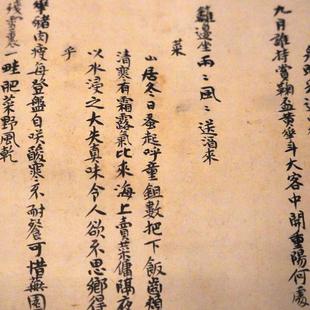 九月誰持賞鞠盃黃花斗大客中開重陽何處
籬邊坐雨〻風〻送酒來
菜
山居冬日蚤起呼童鉏數把下飯齒頰
清爽有霜露氣比來海上賣菜傭隔夜
以水浸之大失真味令人欲不思鄉得
乎
豬肉瘦每登盤自咲酸寒不耐餐可惜蕪園
殘雪裏一畦肥菜野風乾